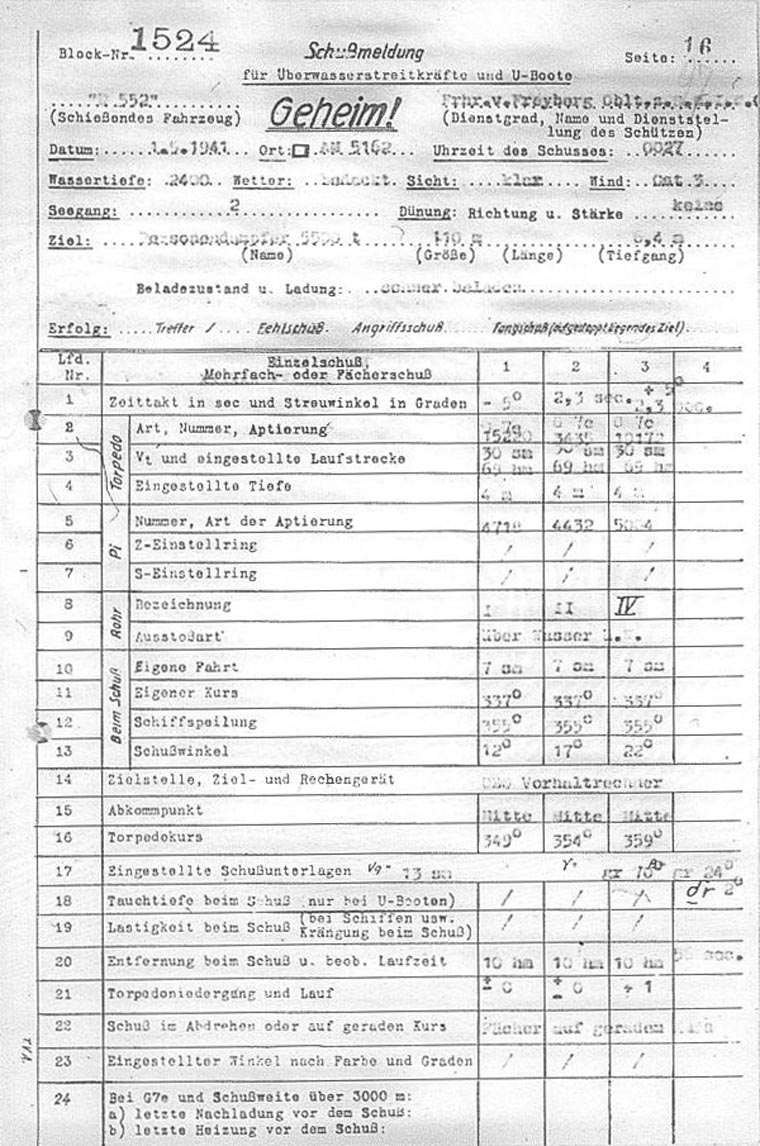 Block-Nr. 1524
Schußmeldung
Seite: 16
für Überwasserstreitkräfte und U-Boote
552"
Geheim!
Frhr.v.Freyberg Oblt.
(Schießendes Fahrzeug)
(Dienstgrad, Name und Dienststel-
lung des Schützen)
Datum: 1.5.1941 Ort: AM 5162 Uhrzeit des Schusses: 0027
Wassertiefe: 2400 Wetter: bedeckt Sicht: klar Wind: Ost 3
Seegang: 2 Dünung: Richtung u. Stärke keine
Ziel: Personendampfer 5500 t 110 m 6,4 m
(Name) (Größe) (Länge) (Tiefgang)
Beladezustand u. Ladung: schwer beladen
Erfolg: Treffer / Fehlschuß. Angriffsschuß. Fangschuß (aufgestoppt liegendes Ziel).
Lfd. Nr. Einzelschuß, Mehrfach- oder Fächerschuß 1 2 3 4
1 Zeittakt in sec und Streuwinkel in Graden - 5° 2,3 sec. + 5° 2,3 sec.
Torpedo
2 Art, Nummer, Aptierung 15220 3435 10172
3 Vt und eingestellte Laufstrecke 30 sm 30 sm 30 sm
69 hm 69 hm 69 hm
4 Eingestellte Tiefe 4 m 4 m 4 m
Pi
5 Nummer, Art der Aptierung 4718 4432
6 Z-Einstellring / / /
7 S-Einstellring / / /
Rohr
8 Bezeichnung I II IV
9 Ausstoßart über Wasser
Beim Schuß
10 Eigene Fahrt 7 sm 7 sm 7 sm
11 Eigener Kurs 337° 337° 337°
12 Schiffspeilung 355° 355° 355°
13 Schußwinkel 12° 17° 22°
14 Zielstelle, Ziel- und Rechengerät Vorhaltrechner
15 Abkommpunkt Mitte Mitte Mitte
16 Torpedokurs 349° 354° 359°
17 Eingestellte Schußunterlagen Vg= 13 sm gr 24°
18 Tauchtiefe beim Schuß (nur bei U-Booten) / / / dr 2°
19 Lastigkeit beim Schuß (bei Schiffen usw. Krängung beim Schuß) / / /
20 Entfernung beim Schuß u. beob. Laufzeit 10 hm 10 hm 10 hm sec.
21 Torpedoniedergang und Lauf ± 0 ± 0 + 1
22 Schuß im Abdrehen oder auf geraden Kurs Fächer auf geradem Kurs
23 Eingestellter Winkel nach Farbe und Graden / / /
24 Bei G7e und Schußweite über 3000 m:
a) letzte Nachladung vor dem Schuß:
b) letzte Heizung vor dem Schuß: